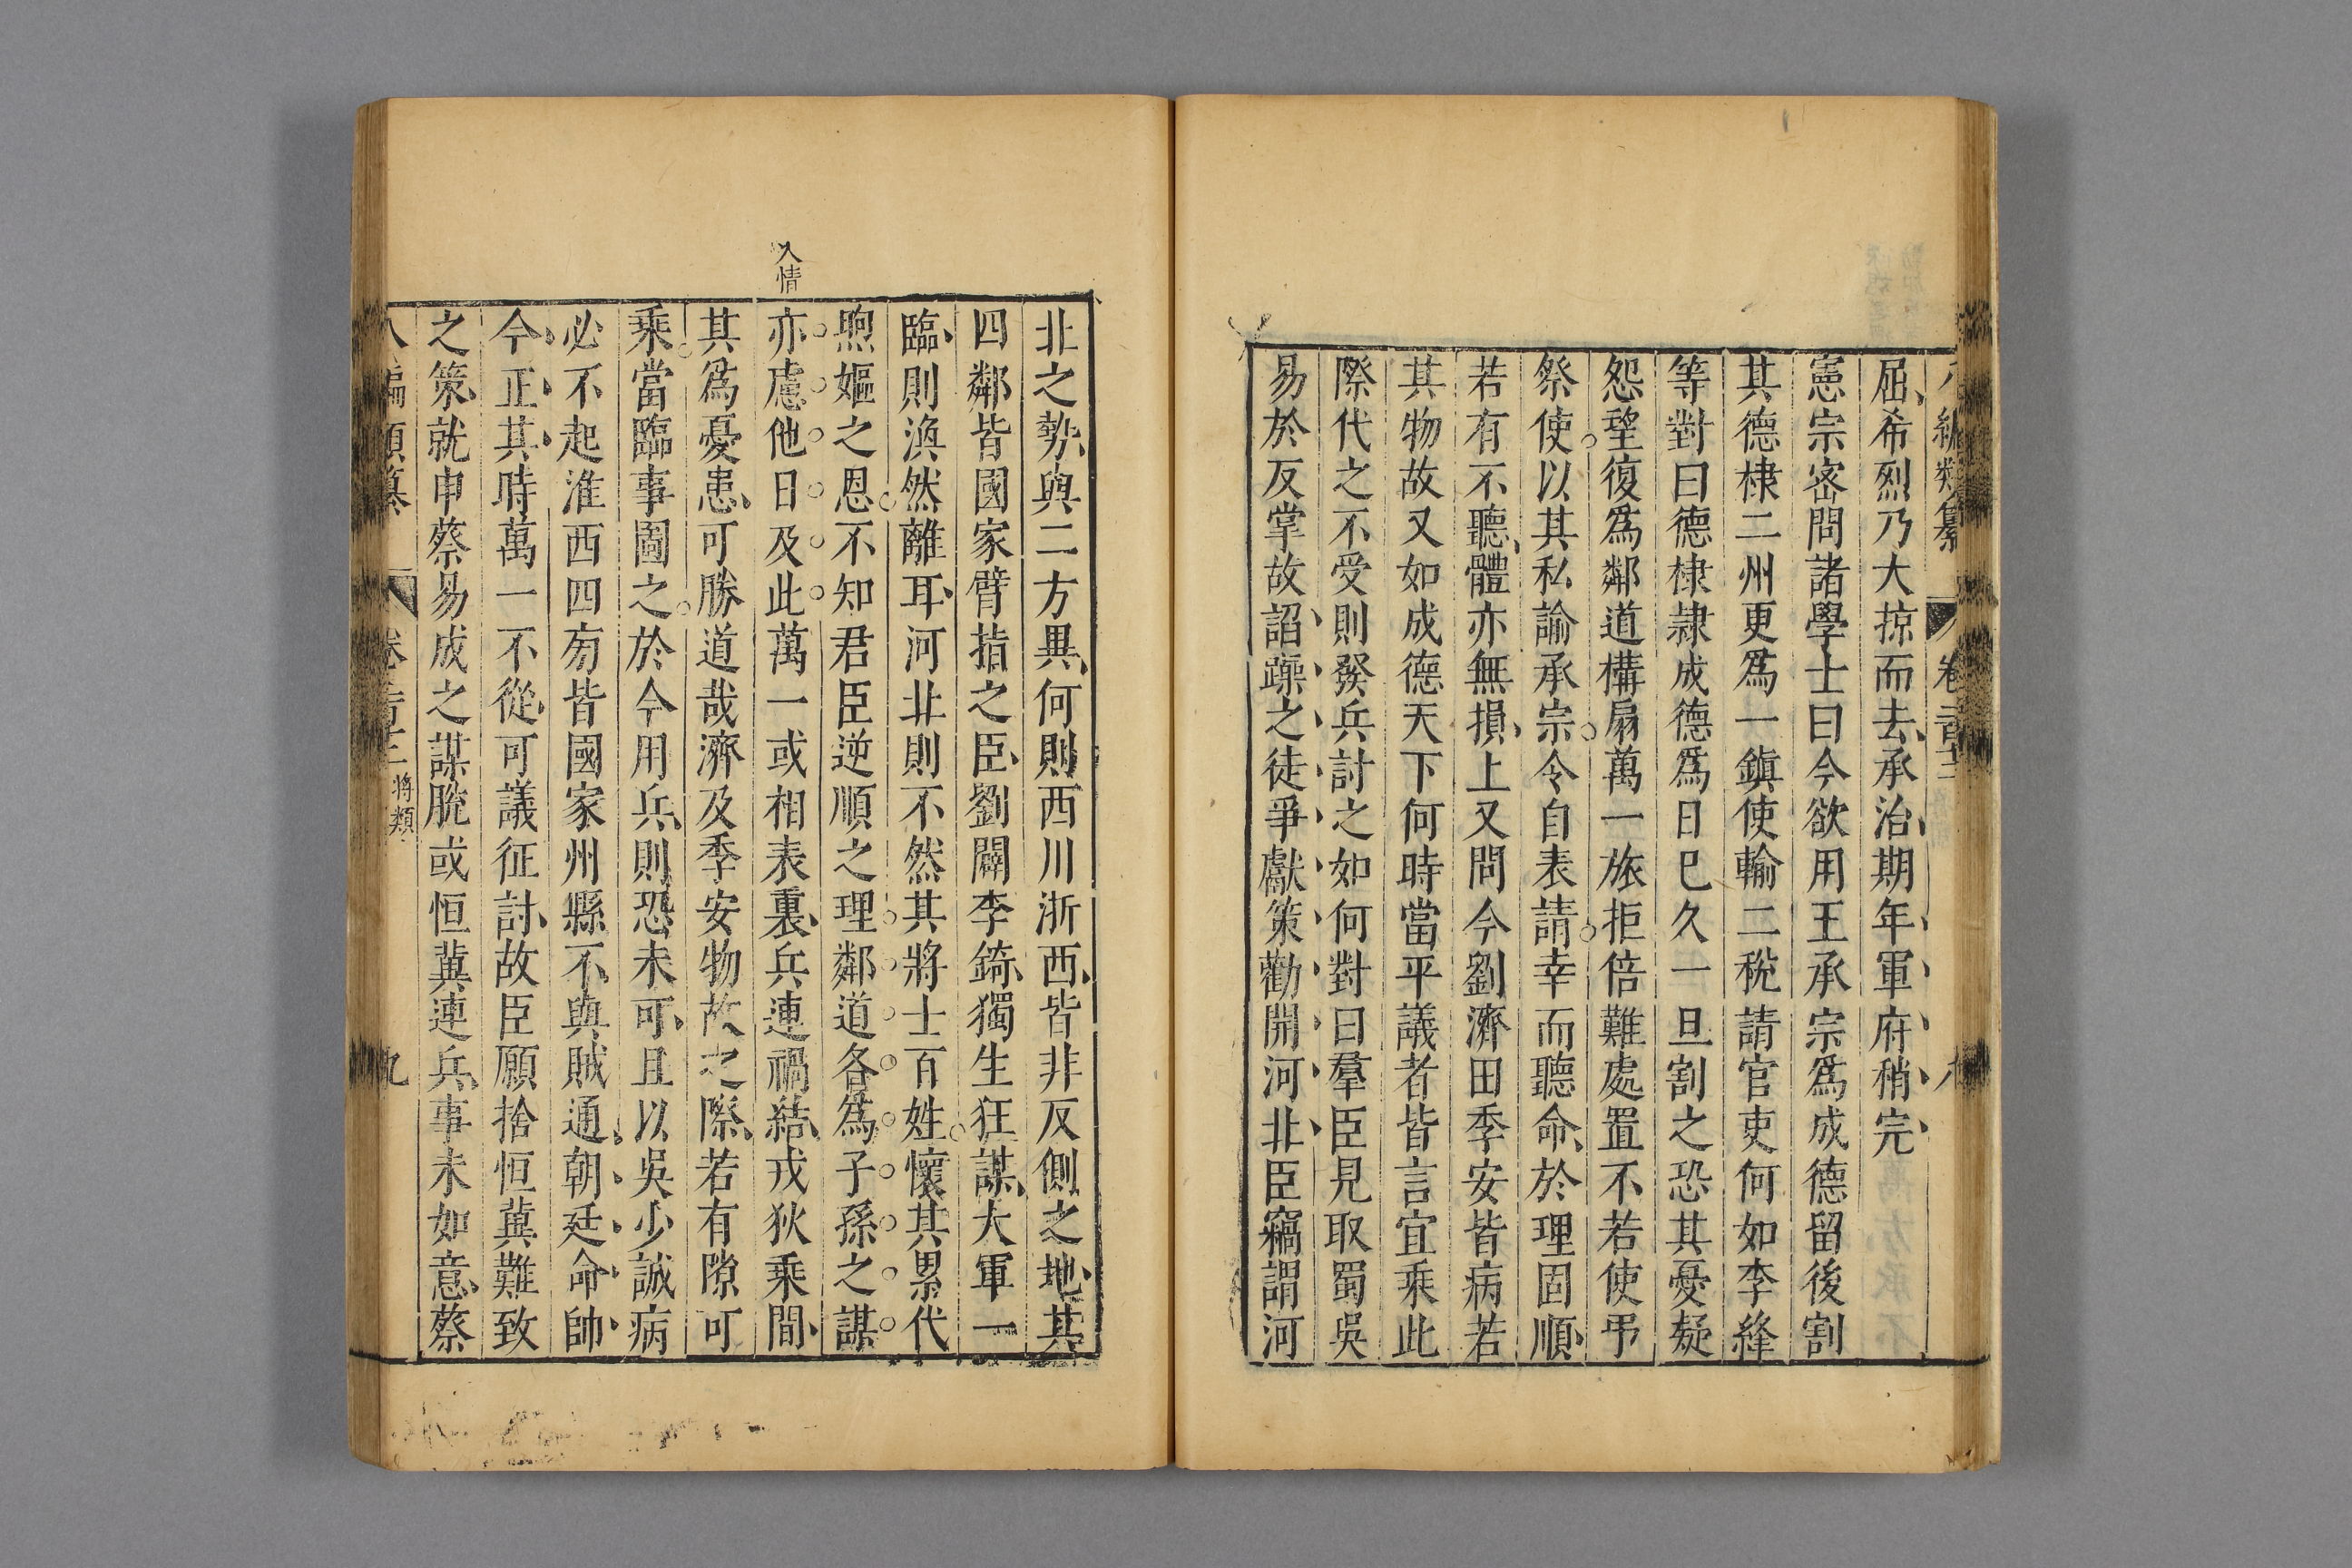 八編類纂 卷一百十三 八
屈希烈乃大掠而去承治期年軍府稍完
憲宗密問諸學士曰今欲用王承宗爲成德留後割
其德棣二州更爲一鎭使輸二稅請官吏何如李絳
等對曰德棣隸成德爲日巳久一旦割之恐其憂疑
怨望復爲鄰道構扇萬一旅拒倍難處置不若使弔
祭使以其私諭承宗令自表請幸而聽命於理固順
若有不聽體亦無損上又問今劉濟田季安皆病若
其物故又如成德天下何時當平議者皆言宜乘此
際代之不受則發兵討之如何對曰羣臣見取蜀吳
易於反掌故謟躁之徒爭獻策勸開河北臣竊謂河
北之勢與二方異何則西川浙西皆非反側之地其
四鄰皆國家臂指之臣劉闢李錡獨生狂謀大軍一
臨則渙然離耳河北則不然其將士百姓懷其累代
煦嫗之恩不知君臣逆順之理鄰道各爲子孫之謀
人情
亦慮他日及此萬一或相表裏兵連禍結戎狄乘間
其爲憂患可勝道哉濟及季安物故之際若有隙可
乘當臨事圖之於今用兵則恐未可且以吳少誠病
必不起淮西四旁皆國家州縣不與賊通朝廷命帥
今正其時萬一不從可議征討故臣願捨恒冀難致
之策就申蔡易成之謀脫或恒冀連兵事未如意蔡
八編類纂 卷一百十三 將類 九